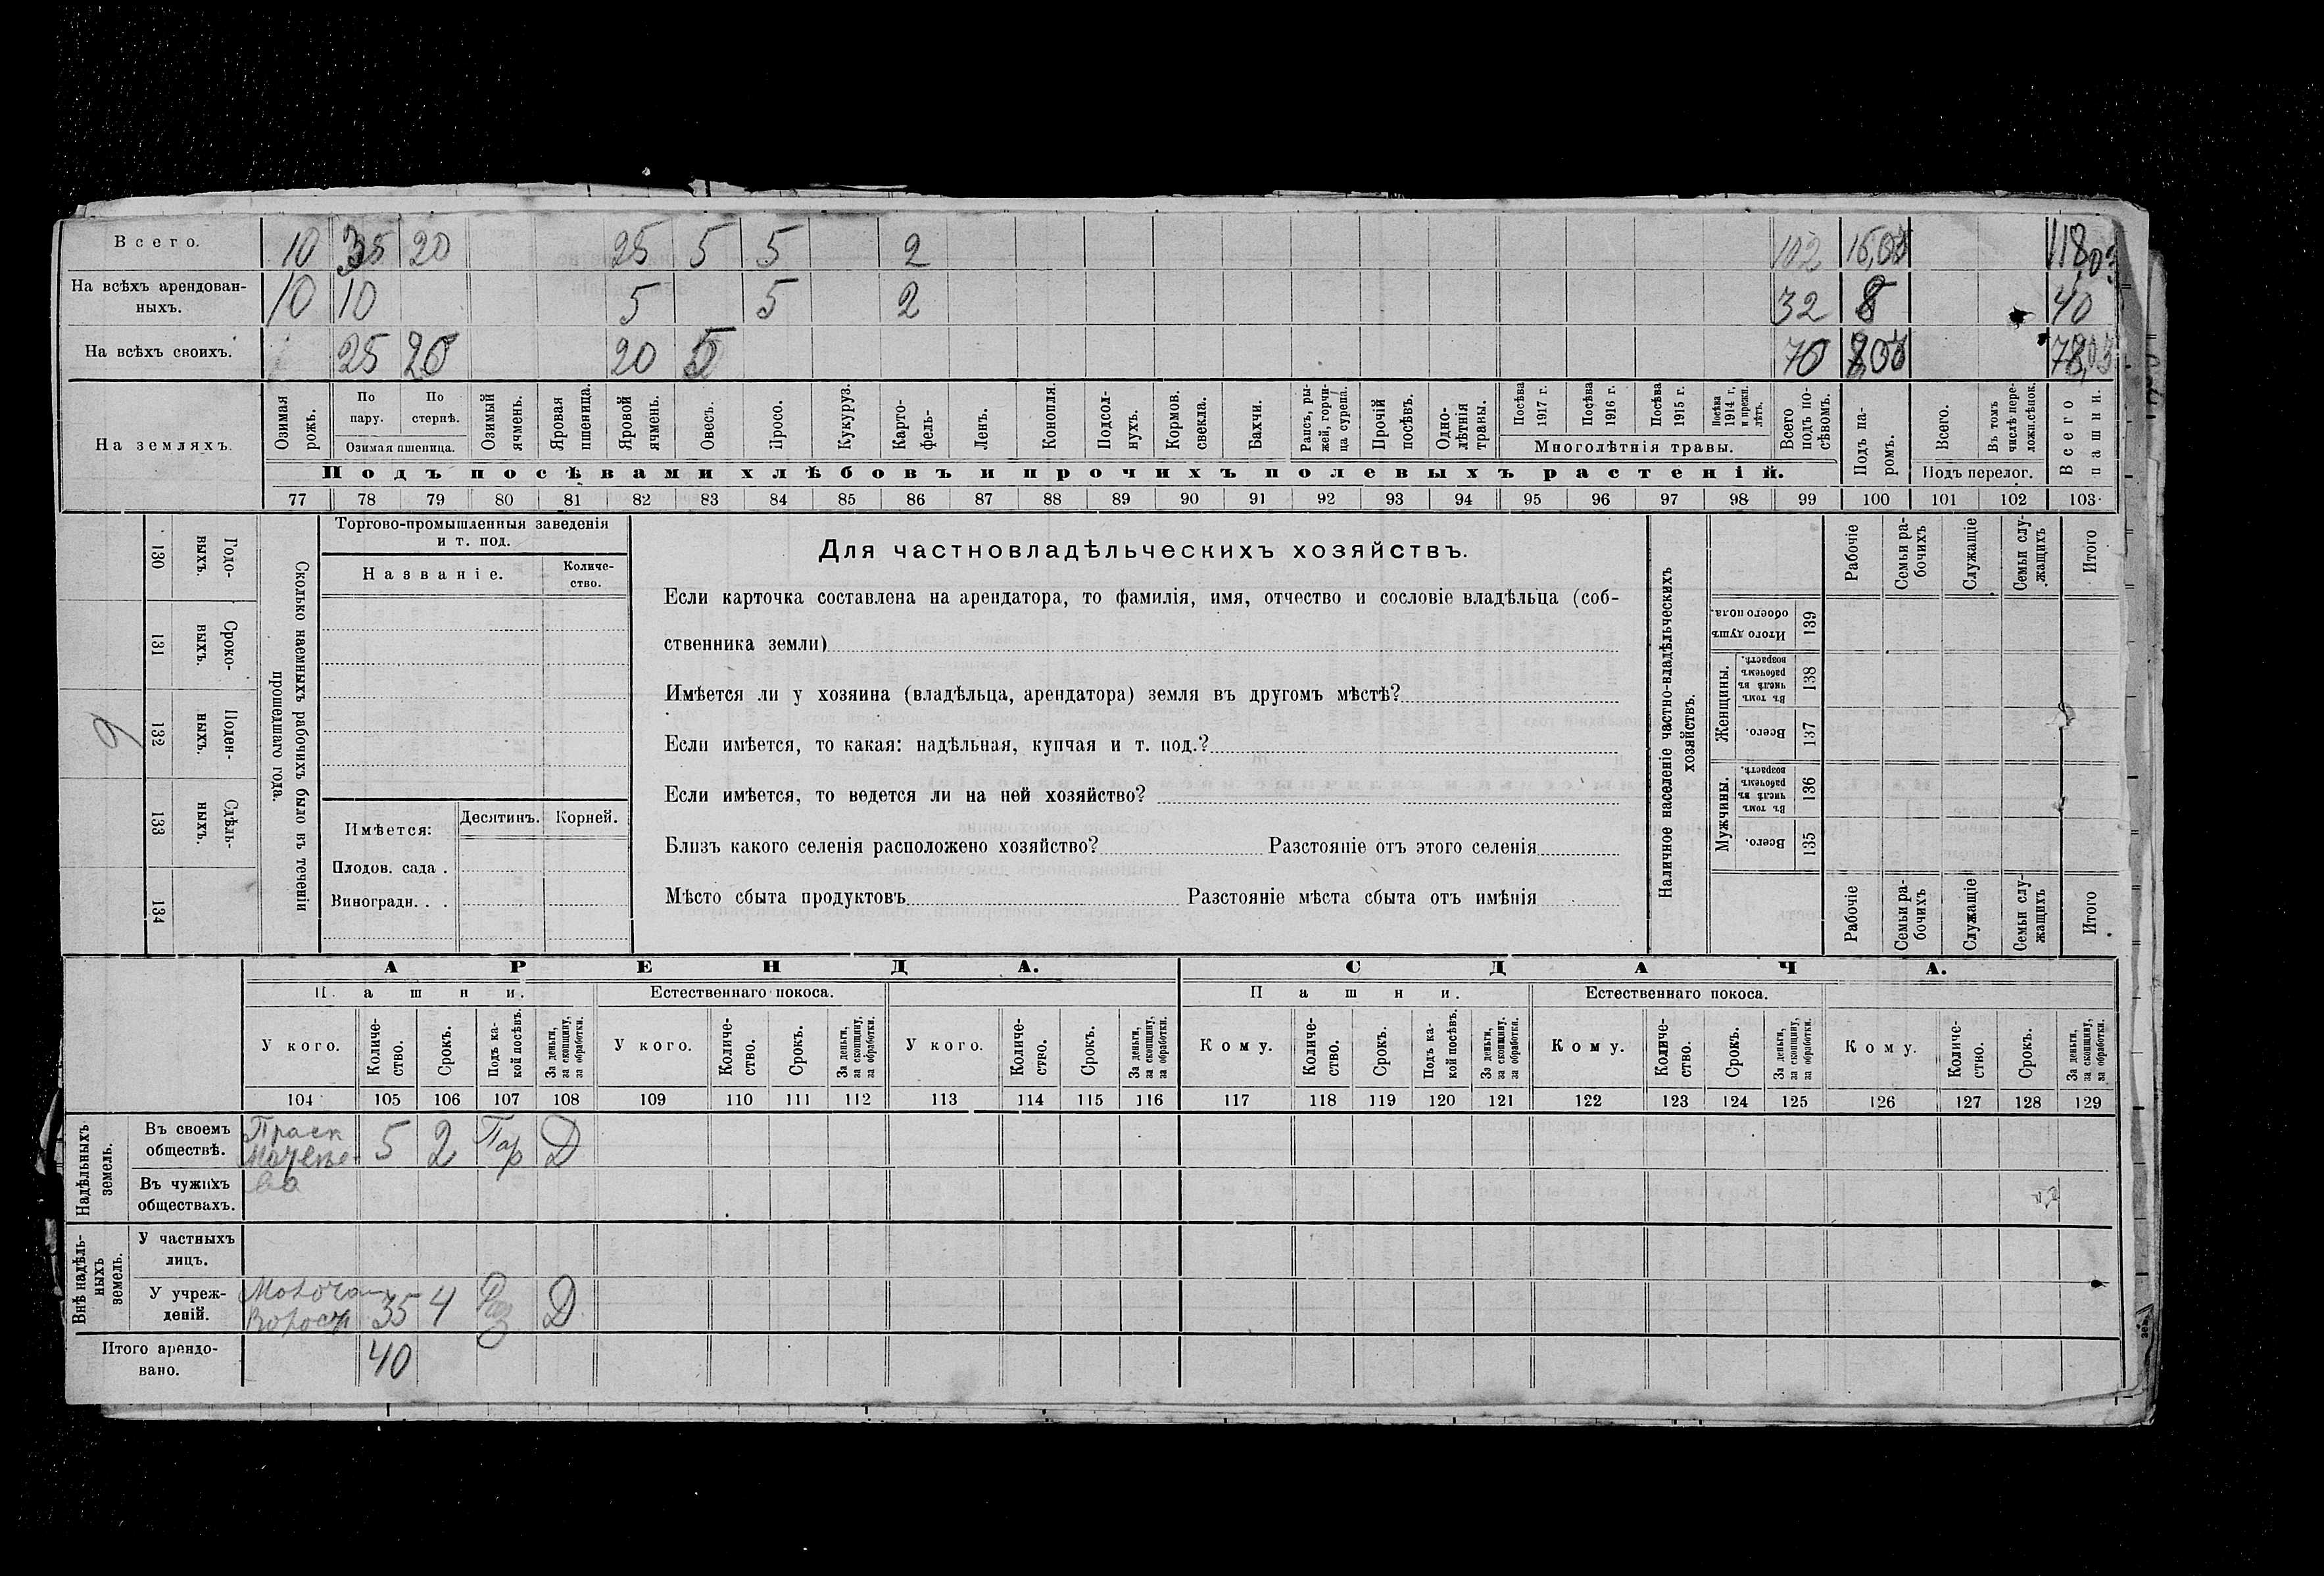 Всего. 10 35 20 25 5 5 2 102 16,03 118,03
На всѣхъ арендован-
ныхъ. 10 10 5 5 2 32 8 40
На всѣхъ своихъ. 25 20 20 5 70 78,03
На земляхъ.
Озимая рожь.
По пару.
По стернѣ.
Озимая пшеница.
Озимый ячмень.
Яровая пшеница.
Яровой ячмень.
Овесъ.
Просо.
Кукуруз.
Карто-
фель-
Ленъ.
Конопля.
Подсол-
нухъ.
Кормов.
свекла.
Бахчи.
Рапсъ, ры-
жей, горчи-
ца сурепа.
Прочій
посѣвъ.
Одно-
лѣтнія
травы.
Посѣва
1917 г.
Посѣва
1916 г.
Посѣва
1915 г.
Посѣва
1914 г.
и прежн.
лѣтъ.
Многолѣтнія травы.
Всего
подъ по-
сѣвомъ.
Подъ па-
ромъ.
Всего.
Въ томъ
числѣ пере-
ложн.сѣнок.
Подъ перелог.
Всего
пашни.
Подъ посѣвами хлѣбовъ и прочихъ полевыхъ растеній.
77 78 79 80 81 82 83 84 85 86 87 88 89 90 91 92 93 94 95 96 97 98 99 100 101 102 103
130 Годо-
выхъ.
131 Сроко-
выхъ.
132 Поден-
ныхъ.
9
133 Сдѣль-
ныхъ.
134
Сколько наемныхъ рабочихъ было въ теченіи
прошедшаго года.
Торгово-промышленныя заведенія
и т. под.
Названіе.
Количе-
ство.
Имѣется:
Десятинъ.
Корней.
Плодов. сада .
Виноградн. . .
Для частновладѣльческихъ хозяйствъ.
Если карточка составлена на арендатора, то фамилія, имя, отчество и сословіе владѣльца (соб-
ственника земли)
Имѣется ли у хозяина (владѣльца, арендатора) земля въ другомъ мѣстѣ?
Если имѣется, то какая: надѣльная, купчая и т. под.?
Если имѣется, то ведется ли на ней хозяйство?
Близъ какого селенія расположено хозяйство? Разстояніе отъ этого селенія
Мѣсто сбыта продуктовъ Разстояніе мѣста сбыта отъ имѣнія
Наличное населеніе частно-владѣльческихъ
хозяйствъ.
Рабочіе
Семьи ра-
бочихъ
Служащіе
Семьи слу-
жащихъ
Итого
Итого душъ
обоего пола.
139
Женщины.
Въ томъ
числѣ въ
рабочемъ
возрастѣ.
138
Всего.
137
Мужчины.
Въ томъ
числѣ въ
рабочемъ
возрастѣ.
136
Всего.
135
Рабочіе
Семьи ра-
бочихъ
Служащіе
Семьи слу-
жащихъ
Итого
АРЕНДА.
СДАЧА.
Пашни.
Естественнаго покоса.
Пашни.
Естественнаго покоса.
У кого.
Количе-
ство.
Срокъ.
Подъ ка-
кой посѣвъ.
За деньги,
за скопщину,
за обработки.
У кого.
Количе-
ство.
Срокъ.
За деньги,
за скопщину,
за обработки.
У кого.
Количе-
ство.
Срокъ.
За деньги,
за скопщину,
за обработки.
Кому.
Количе-
ство.
Срокъ.
Подъ ка-
кой посѣвъ.
За деньги,
за скопщину.
за обработки.
Кому.
Количе-
ство.
Срокъ.
За деньги,
за скопщину,
за обработки.
Кому.
Количе-
ство.
Срокъ.
За деньги,
за скопщину,
за обработки.
104 105 106 107 108 109 110 111 112 113 114 115 116 117 118 119 120 121 122 123 124 125 126 127 128 129
Надѣльныхъ
земель.
Въ своемъ
обществѣ.
Праск 5 2 Пар Д
Въ чужихъ
обществахъ.
Внѣ надѣль-
ныхъ
земель.
У частныхъ
лицъ.
У учреж-
деній.
35 4 Д
Итого арендо-
вано.
40